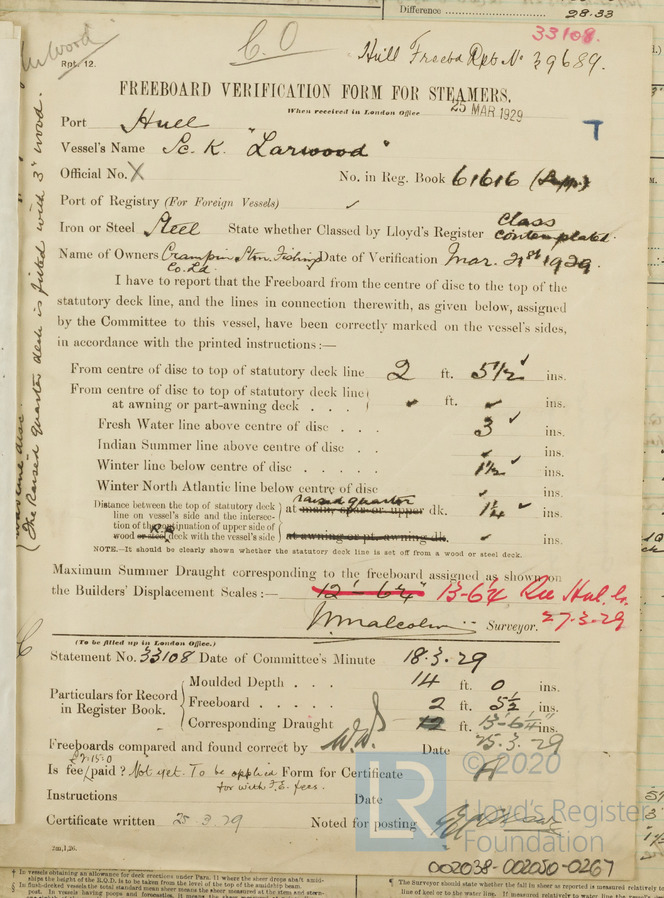 Difference 28.33
33108.
C. O Hull Freebd Rpt No 39689.
Rpt. 12.
FREEBOARD VERIFICATION FORM FOR STEAMERS.
When received in London Office 25 MAR 1929
Port Hull
Vessel's Name Sc. K. "Larwood"
Official No. X No. in Reg. Book 61616
Port of Registry (For Foreign Vessels) ✓
Iron or Steel Steel State whether Classed by Lloyd's Register Class contemplated.
Name of Owners Crampin Stm. Fishing Co. Ld. Date of Verification Mar. 21st 1929.
I have to report that the Freeboard from the centre of disc to the top of the
statutory deck line, and the lines in connection therewith, as given below, assigned
by the Committee to this vessel, have been correctly marked on the vessel's sides,
in accordance with the printed instructions:—
From centre of disc to top of statutory deck line 2 ft. 5½ ins.
From centre of disc to top of statutory deck line
at awning or part-awning deck . . . ft. ins.
Fresh Water line above centre of disc . . . 3 ins.
Indian Summer line above centre of disc . . ins.
Winter line below centre of disc . . . . . 1½ ins.
Winter North Atlantic line below centre of disc ins.
raised quarter
Distance between the top of statutory deck
line on vessel's side and the intersec- at main, spar or upper dk. 1¼ ins.
tion of the continuation of upper side of R.Q.
wood or steel deck with the vessel's side at awning or pt. awning dk. ins.
NOTE.—It should be clearly shown whether the statutory deck line is set off from a wood or steel deck.
Maximum Summer Draught corresponding to the freeboard assigned as shown on
the Builders' Displacement Scales:— 12' - 6¼" 13-6¼
27-3-29
W. Malcolm Surveyor.
(To be filled up in London Office.)
Statement No. 33108 Date of Committee's Minute 18.3.29
Particulars for Record in Register Book.
Moulded Depth . . . 14 ft. 0 ins.
Freeboard . . . . . 2 ft. 5½ ins.
Corresponding Draught 12 ft. 13-6¼" ins.
Freeboards compared and found correct by Date 25.3.29
Is fee paid? Not yet. To be applied Form for Certificate
for with F.E. fees.
Instructions Date
Certificate written 25.3.29 Noted for posting
2m,1,26.
The Raised Quarter deck is fitted with 3" wood.
© 2020
LR
Lloyd's Register
Foundation
002038-002050-0267
† In vessels obtaining an allowance for deck erections under Para. 11 where the sheer drops abaft amid-
ships the height of the R.Q.D. is to be taken from the level of the top of the midship beam.
§ In flush-decked vessels the total standard mean sheer means the sheer measured at the stem and stern-
¶ The Surveyor should state whether the fall in sheer as reported is measured relatively to